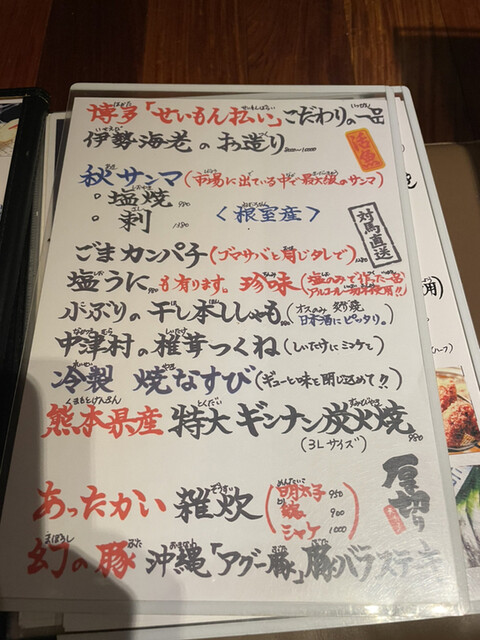 博多「せいもん払い」こだわりの一品
伊勢海老のお造り
活魚
秋サンマ(市場に出ている中で最大級のサンマ)
・塩焼 980
・刺 1180 〈根室産〉
対馬直送
ごまカンパチ(ゴマサバと同じタレで)
塩うにも有ります。珍味(塩のみで作った一品 アルコール一切不使用!!)
小ぶりの干し本ししゃも(オスのみ 炙り焼 日本酒にピッタリ。)
中津村の椎茸つくね(しいたけにミンチを)
冷製 焼なすび(ギューと味を閉じ込めて!!)
熊本県産 特大ギンナン炭火焼 980
(3Lサイズ)
厚切り
あったかい 雑炊
明太子 950
900
シャケ 1000
幻の豚 沖縄「アグー豚」豚バラステーキ